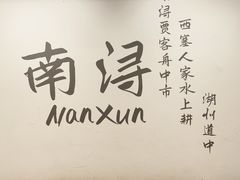 南浔
NanXun
浔贾客舟中市
西塞人家水上耕
湖州道中